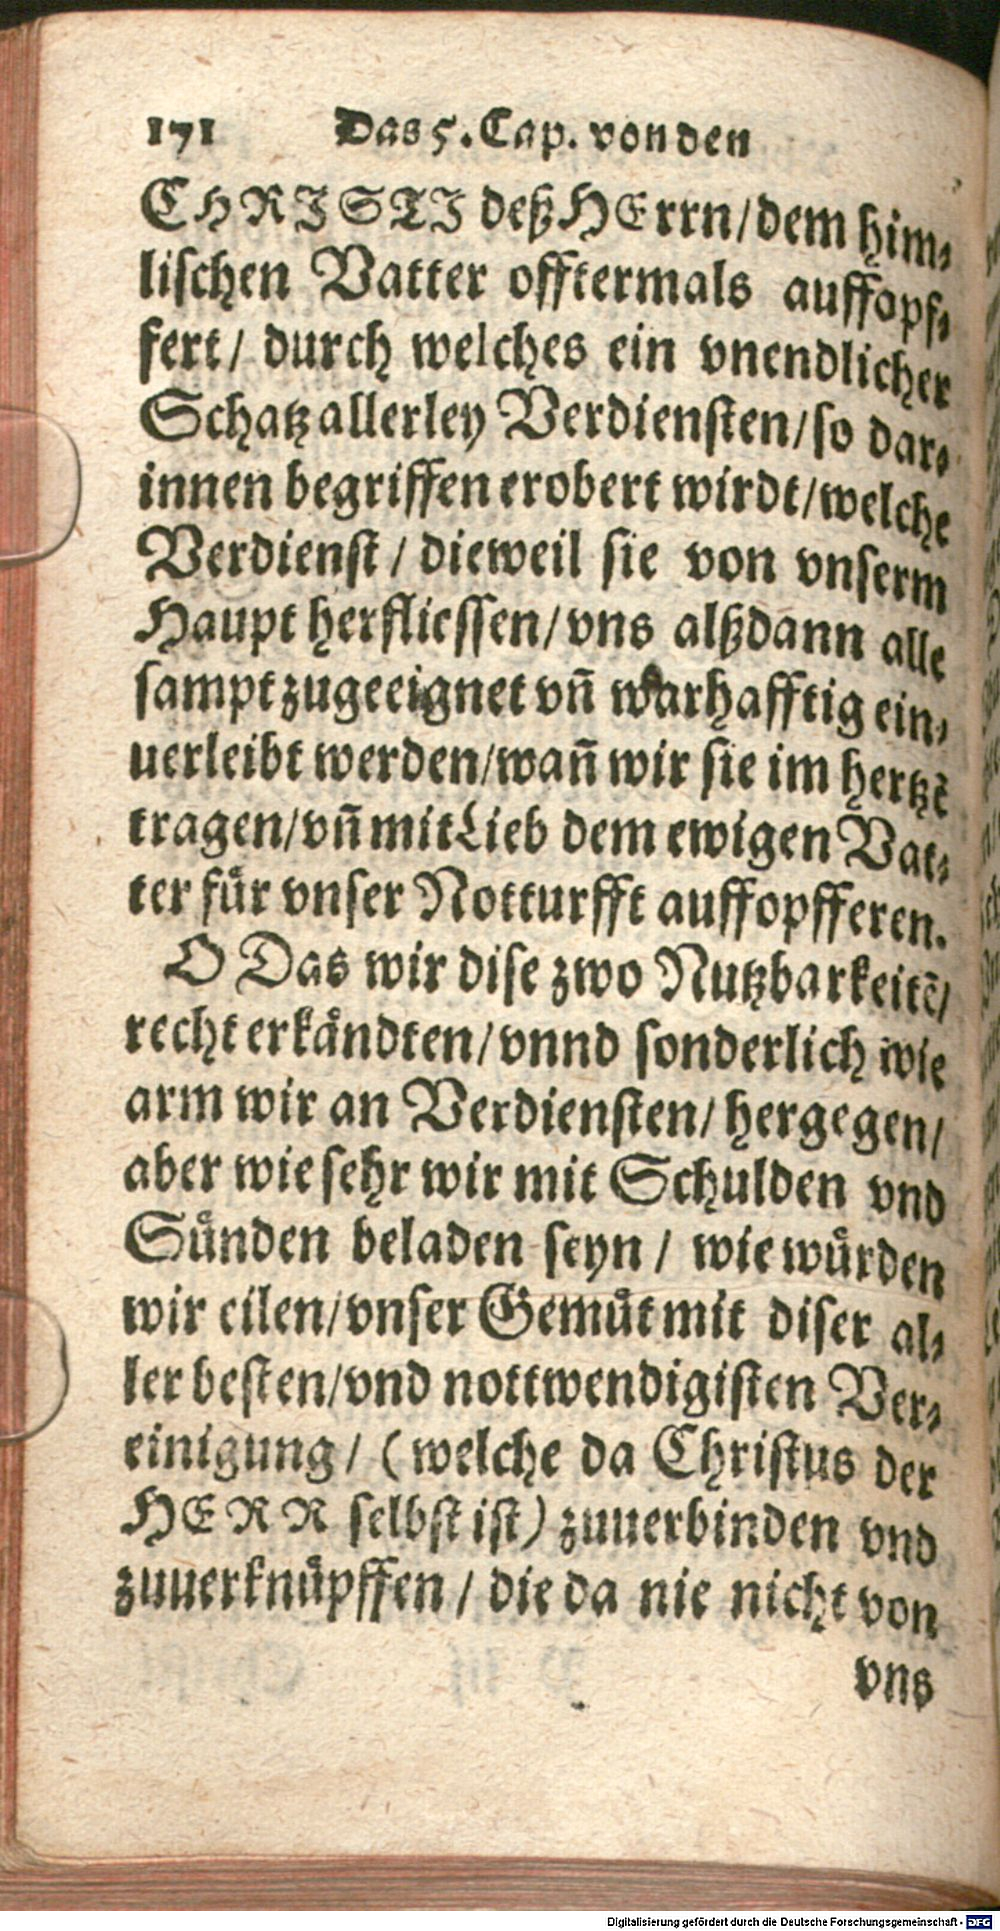 171 Das 5. Cap. von den
CHRISTI deß HErrn/dem him⸗
lischen Vatter offtermals auffopf⸗
fert/ durch welches ein vnendlicher
Schatz allerley Verdiensten/so dar⸗
innen begriffen erobert wirdt/welche
Verdienst / dieweil sie von vnserm
Haupt herfliessen/vns alßdann alle
sampt zugeeignet vñ warhafftig ein⸗
uerleibt werden/wañ wir sie im hertzẽ
tragen/vñ mit Lieb dem ewigen Vat⸗
ter fuͤr vnser Notturfft auffopfferen.
O Das wir dise zwo Nutzbarkeitẽ/
recht erkaͤndten/vnnd sonderlich wie
arm wir an Verdiensten/ hergegen/
aber wie sehr wir mit Schulden vnd
Suͤnden beladen seyn / wie wuͤrden
wir eilen/vnser Gemuͤt mit diser al⸗
ler besten/vnd nottwendigisten Ver⸗
einigung/ (welche da Christus der
HERR selbst ist) zuuerbinden vnd
zuuerknuͤpffen / die da nie nicht von
vns
Digitalisierung gefördert durch die Deutsche Forschungsgemeinschaft - DFG